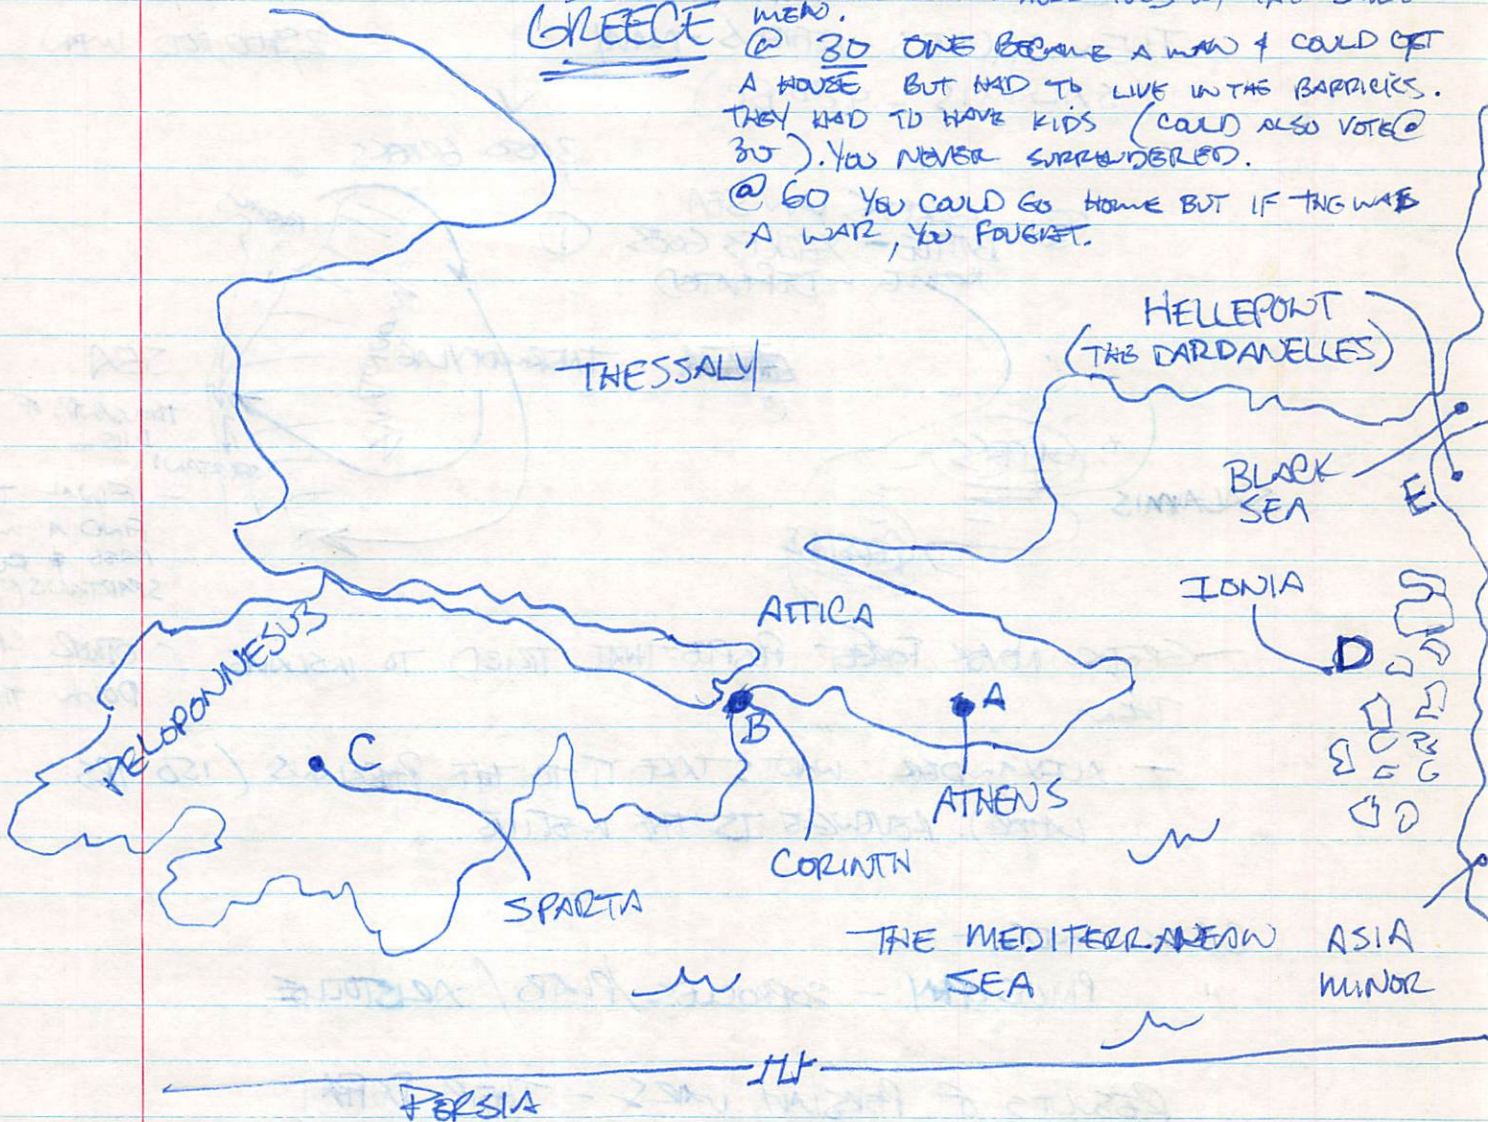 GREECE
MEN.
@ 30 ONE BECAME A MAN & COULD GET
A HOUSE BUT HAD TO LIVE IN THE BARRICKS.
THEY HAD TO HAVE KIDS (COULD ALSO VOTE @
30). YOU NEVER SURRENDERED.
@ 60 YOU COULD GO HOME BUT IF THE WAS
A WAR, YOU FOUGHT.
HELLEPONT
(THE DARDANELLES)
THESSALY
BLACK
SEA
E
IONIA
D
ATTICA
PELOPONNESUS
A
B
C
ATHENS
CORINTH
SPARTA
THE MEDITERRANEAN
SEA
ASIA
MINOR
PERSIA